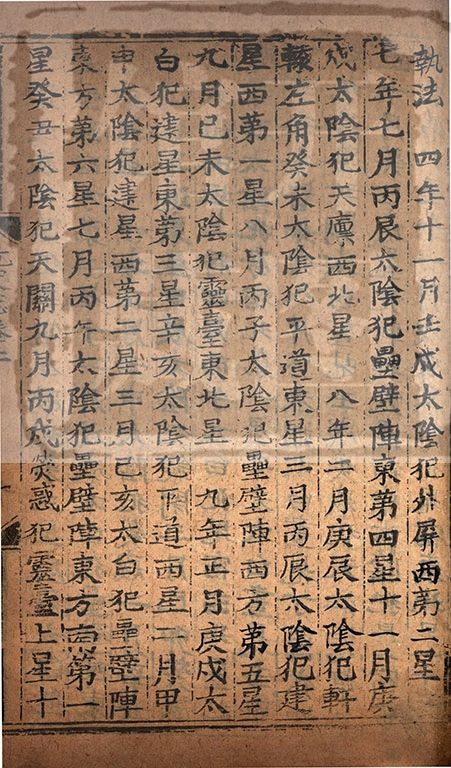 執法　四年十一月壬戌太陰犯外屏西第二星
七年七月丙辰太陰犯壘壁陣東第四星十一月庚
戌太陰犯天廩西北星　八年二月庚辰太陰犯軒
轅左角癸未太陰犯平道東星三月丙辰太陰犯建
星西第一星八月丙子太陰犯壘壁陣西方第五星
九月己未太陰犯靈臺東北星　九年正月庚戌太
白犯建星東第三星辛亥太陰犯平道西星二月甲
申太陰犯建星西第二星三月己亥太白犯壘壁陣
東方第六星七月丙午太陰犯壘壁陣東方南第一
星癸丑太陰犯天關九月丙戌熒惑犯靈臺上星十